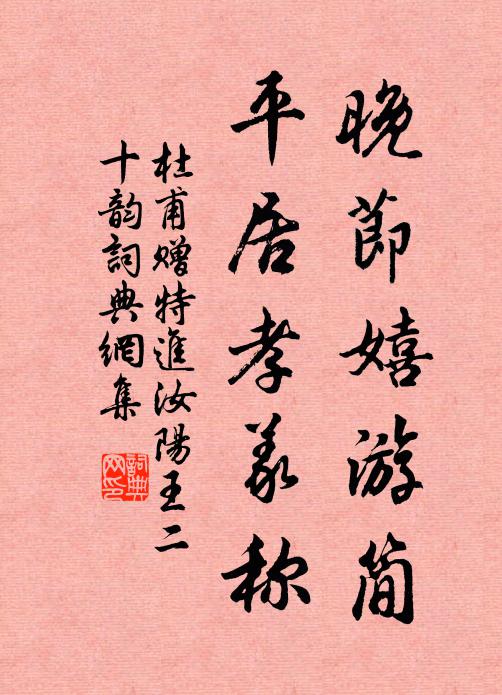 晚節嬉游簡
平居孝義称
杜甫贈特進汝陽王二
十韵詞典網集
詞典
网印